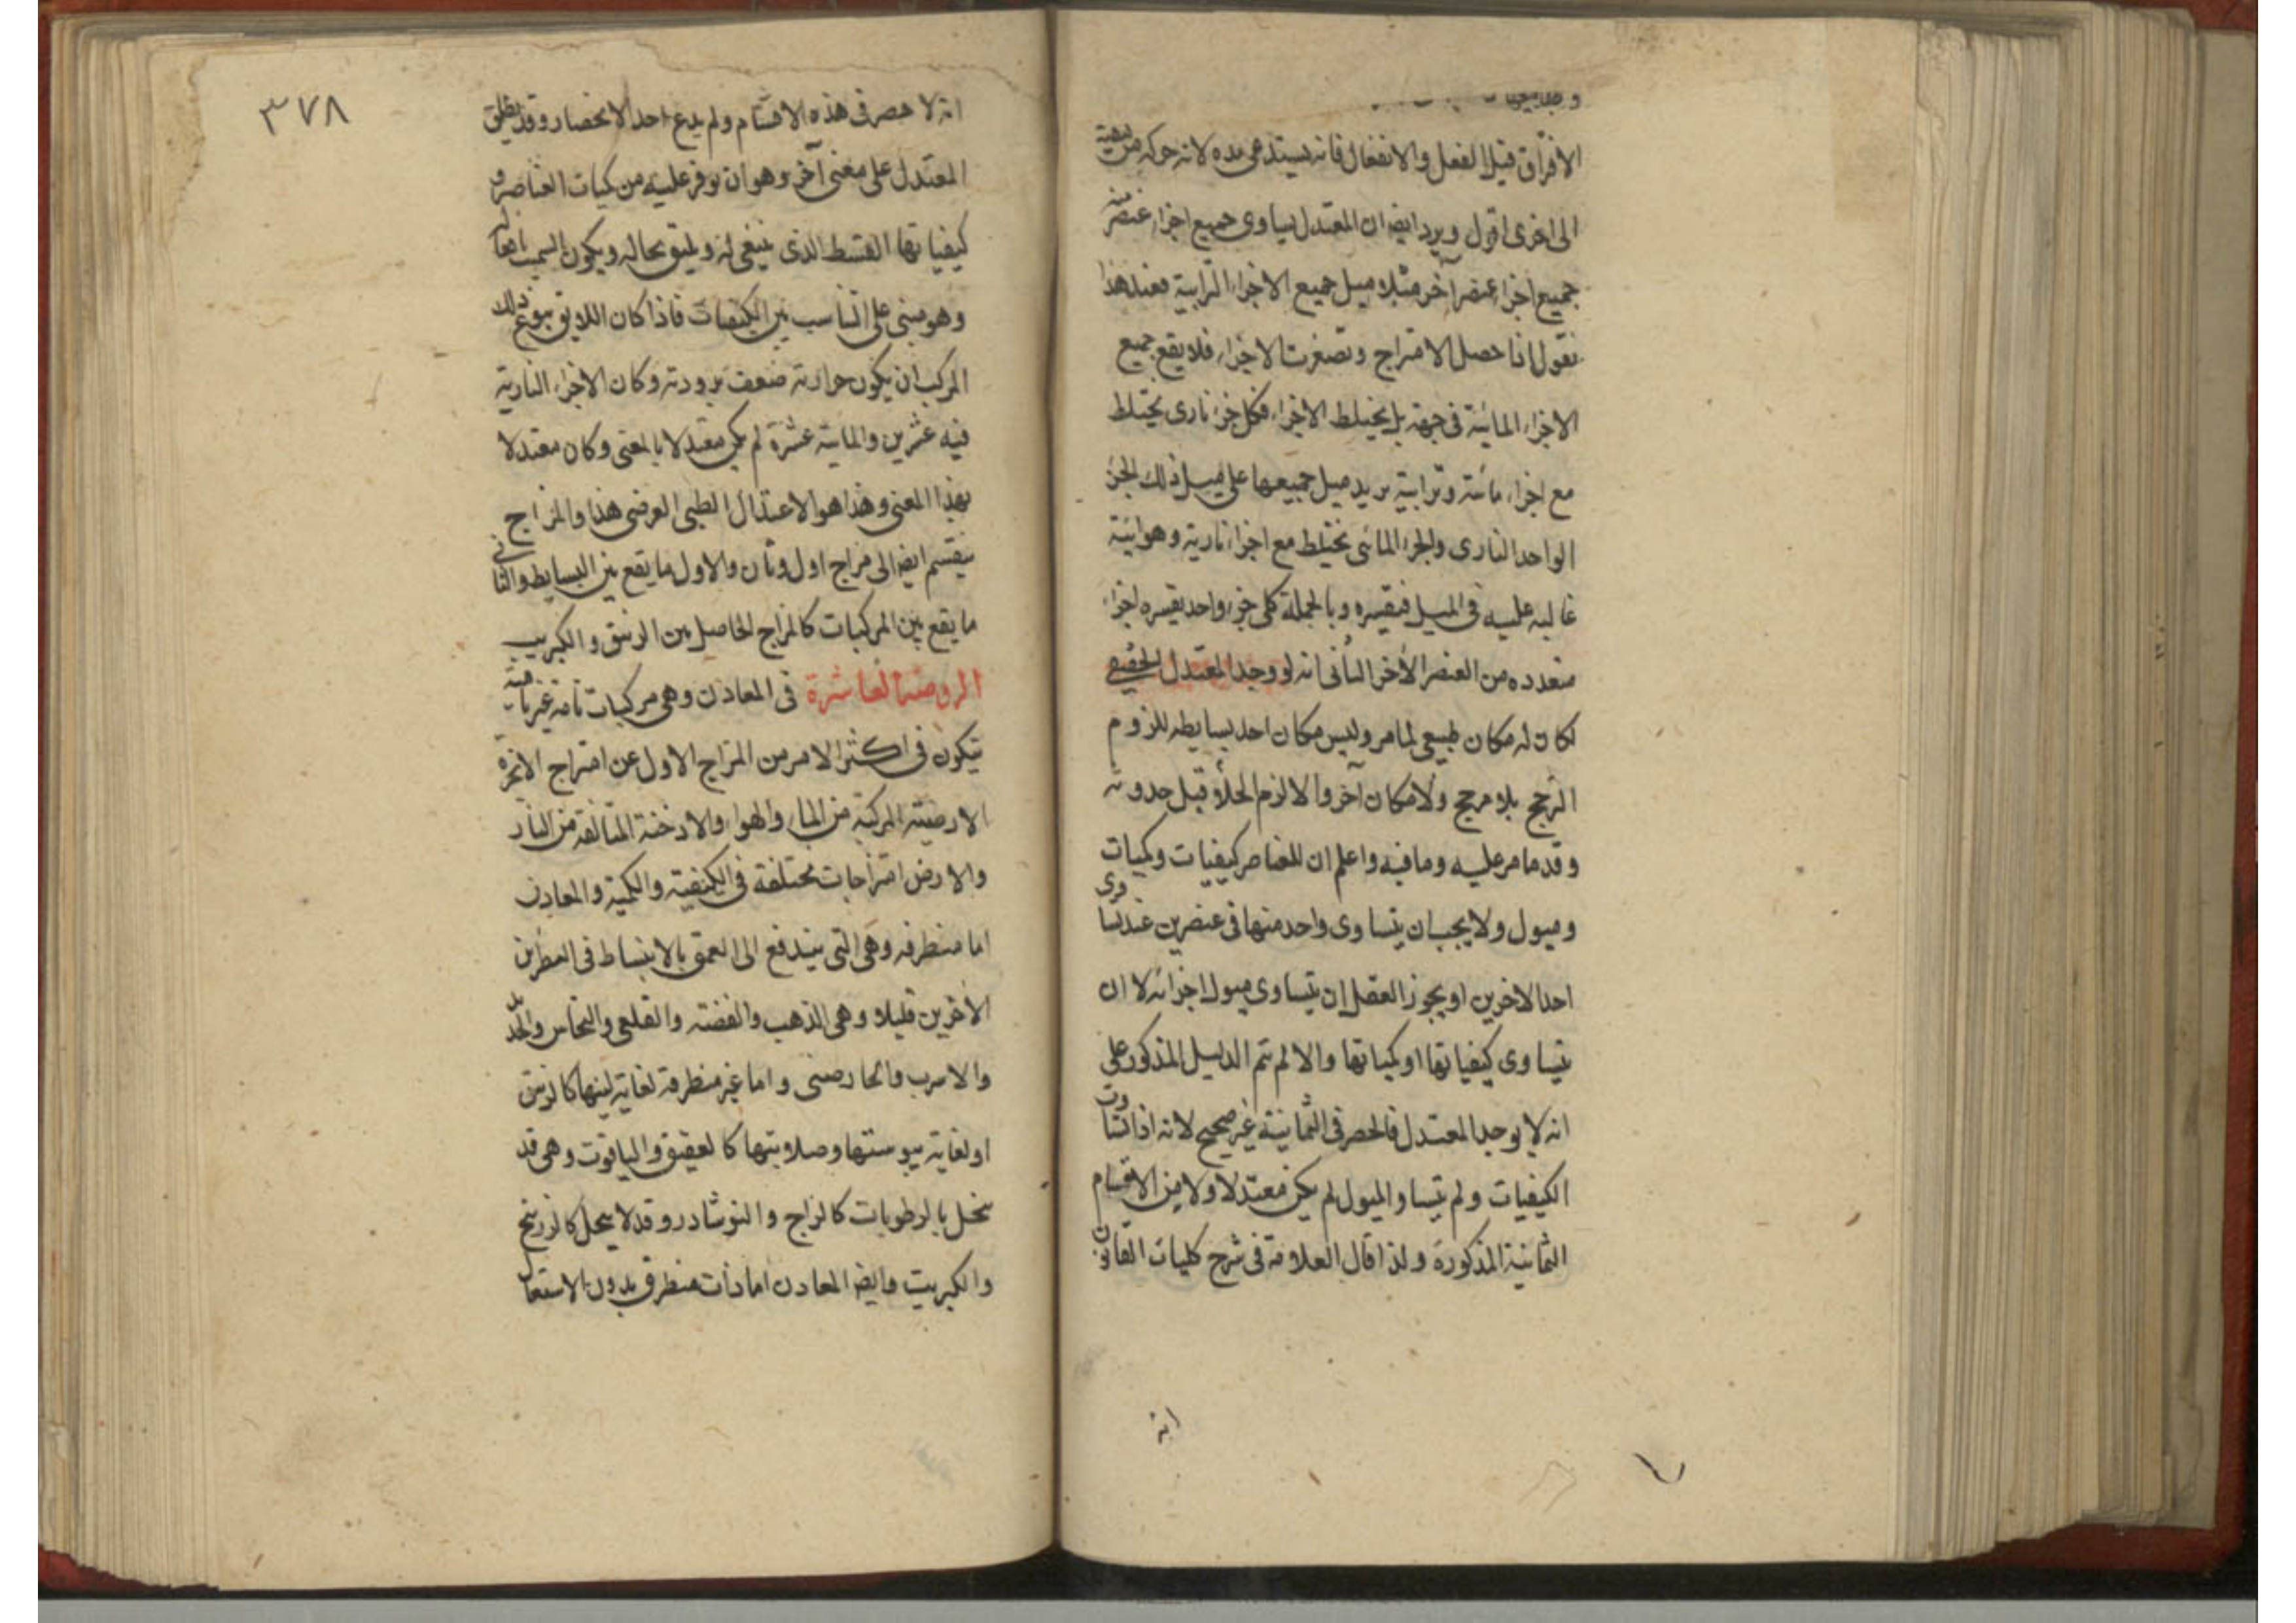 الافراق قبل الفعل والانفعال فانه يستدعى مده لانه حركه من كيفية
الى اخرى اقول ويرد ايضا ان المعتدل يساوى جميع اجزاء عنصر منه
جميع اجزاء عنصر آخر مثلا ميل جميع الاجزاء الترابية فعند هذا
نقول اذا حصل الامتزاج وتصغرت الاجزاء فلا يقع جميع
الاجزاء المائية فى جهة بل يختلط الاجزاء فكل جزء نارى يختلط
مع اجزاء مائية وترابية يزيد ميل جميعها على ميل ذلك الجزء
الواحد النارى والجزء المائى يختلط مع اجزاء نارية وهوائية
غالبه عليه فى الميل فيقسره وبالجملة كل جزء واحد يقسره اجزاء
متعدده من العنصر الآخر الثانى انه لو وجد المعتدل الحقيقى
لكان له مكان طبيعى لما مر وليس مكان احد بسايطه للزوم
الترجح بلا مرجح ولا مكان آخر والا لزم الخلاء قبل حدوثه
وقد مر ما عليه وما فيه واعلم ان للعناصر كيفيات وكميات
وميول ولا يجب ان يتساوى واحد منها فى عنصرين عند تساوى
احد الاخرين او يجوز العقل ان يتساوى ميول اجزائه لا ان
يتساوى كيفياتها او كمياتها والا لم يتم الدليل المذكور على
انه لا يوجد المعتدل فالحصر فى الثمانية غير صحيح لانه اذا تساوت
الكيفيات ولم يتساو الميول لم يكن معتدلا ولا من الاقسام
الثمانية المذكورة ولذا قال العلامة فى شرح كليات القانون
انه
٣٧٨
انه لا حصر فى هذه الاقسام ولم يدع احد الانحصار وقد يطلق
المعتدل على معنى آخر وهو ان يوفر عليه من كميات العناصر و
كيفياتها القسط الذى ينبغى له ويليق بحاله ويكون انسب بافعاله
وهو مبنى على التناسب بين الكيفيات فاذا كان اللايق بنوع ذلك
المركب ان يكون حرارته ضعف برودته وكان الاجزاء النارية
فيه عشرين والمائية عشرة لم يكن معتدلا بالمعنى وكان معتدلا
بهذا المعنى وهذا هو الاعتدال الطبى العرضى هذا والمزاج
ينقسم ايضا الى مزاج اول وثان والاول ما يقع بين البسايط والثانى
ما يقع بين المركبات كالمزاج الحاصل بين الزيبق والكبريت
الروضة العاشرة فى المعادن وهى مركبات تامة غير نامية
يتكون فى اكثر الامر من المزاج الاول عن امتزاج الابخرة
الارضية المركبة من الماء والهواء والادخنة المتالفة من النار
والارض امتزاجات مختلفة فى الكيفية والكمية والمعادن
اما منطرقه وهى التى يندفع الى العمق بالانبساط فى القطرين
الآخرين قليلا وهى الذهب والفضة والقلعى والنحاس والحديد
والاسرب والخارصينى واما غير منطرقة لغاية لينها كالزيبق
او لغاية يبوستها وصلابتها كالعقيق والياقوت وهى قد
ينحل بالرطوبات كالزاج والنوشادر وقد لا ينحل كالزرنيخ
والكبريت وايضا المعادن اما ذات منطرق بدون الاستعال